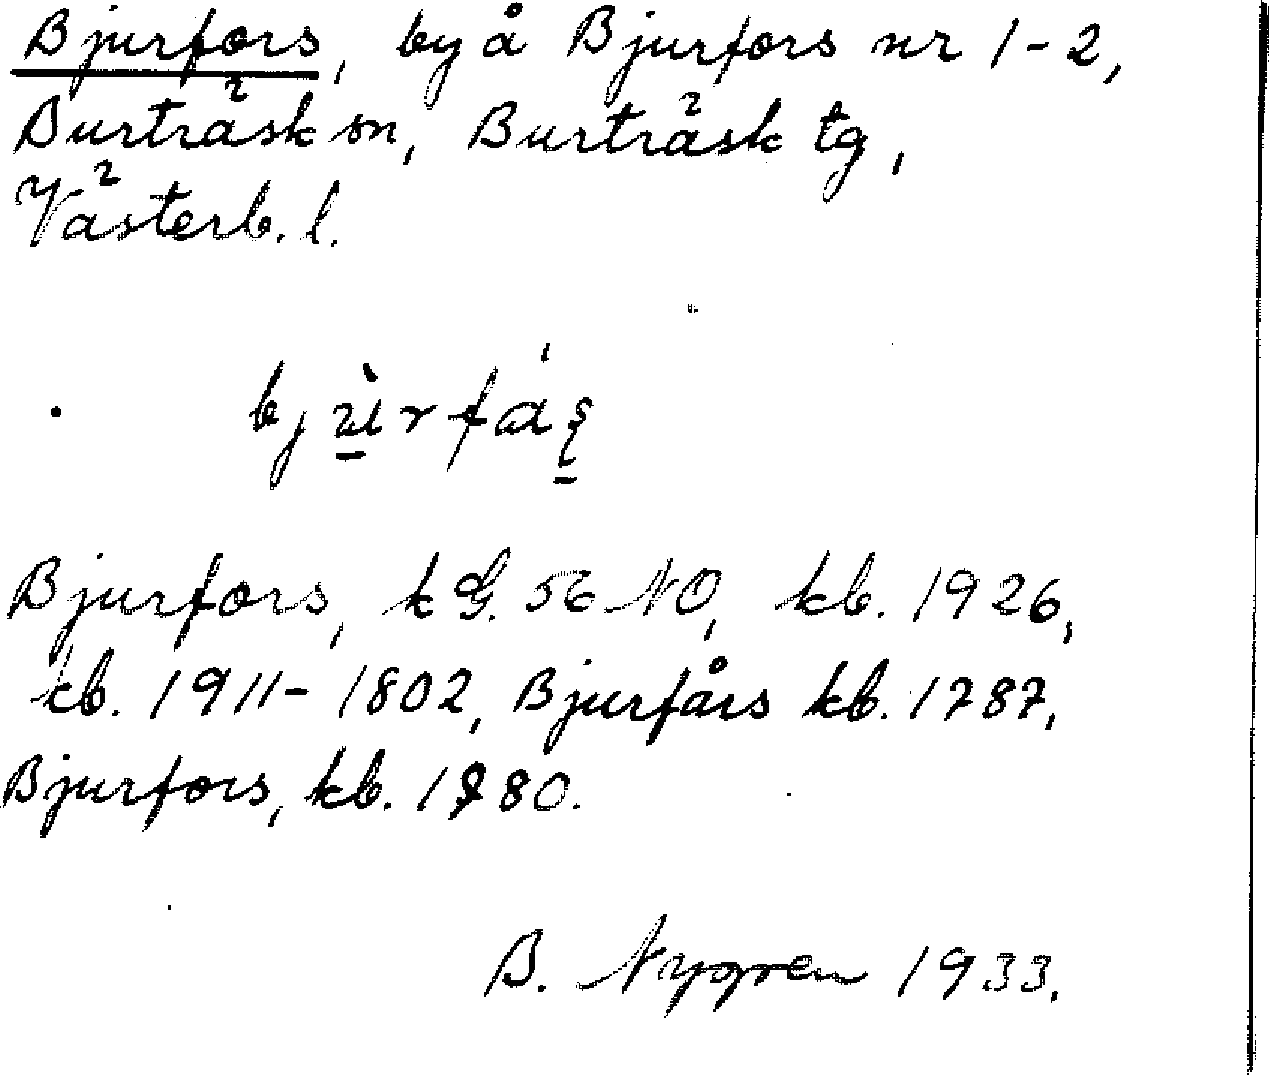 Bjurfors, by å Bjurfors nr 1-2,
Burträsk sn, Burträsk tg,
Västerb. l.
Bjurfors, k G. 56 NO, kb. 1926,
kb. 1911-1802, Bjurfårs kb. 1787,
Bjurfors, kb. 1780.
B. Nygren 1933.